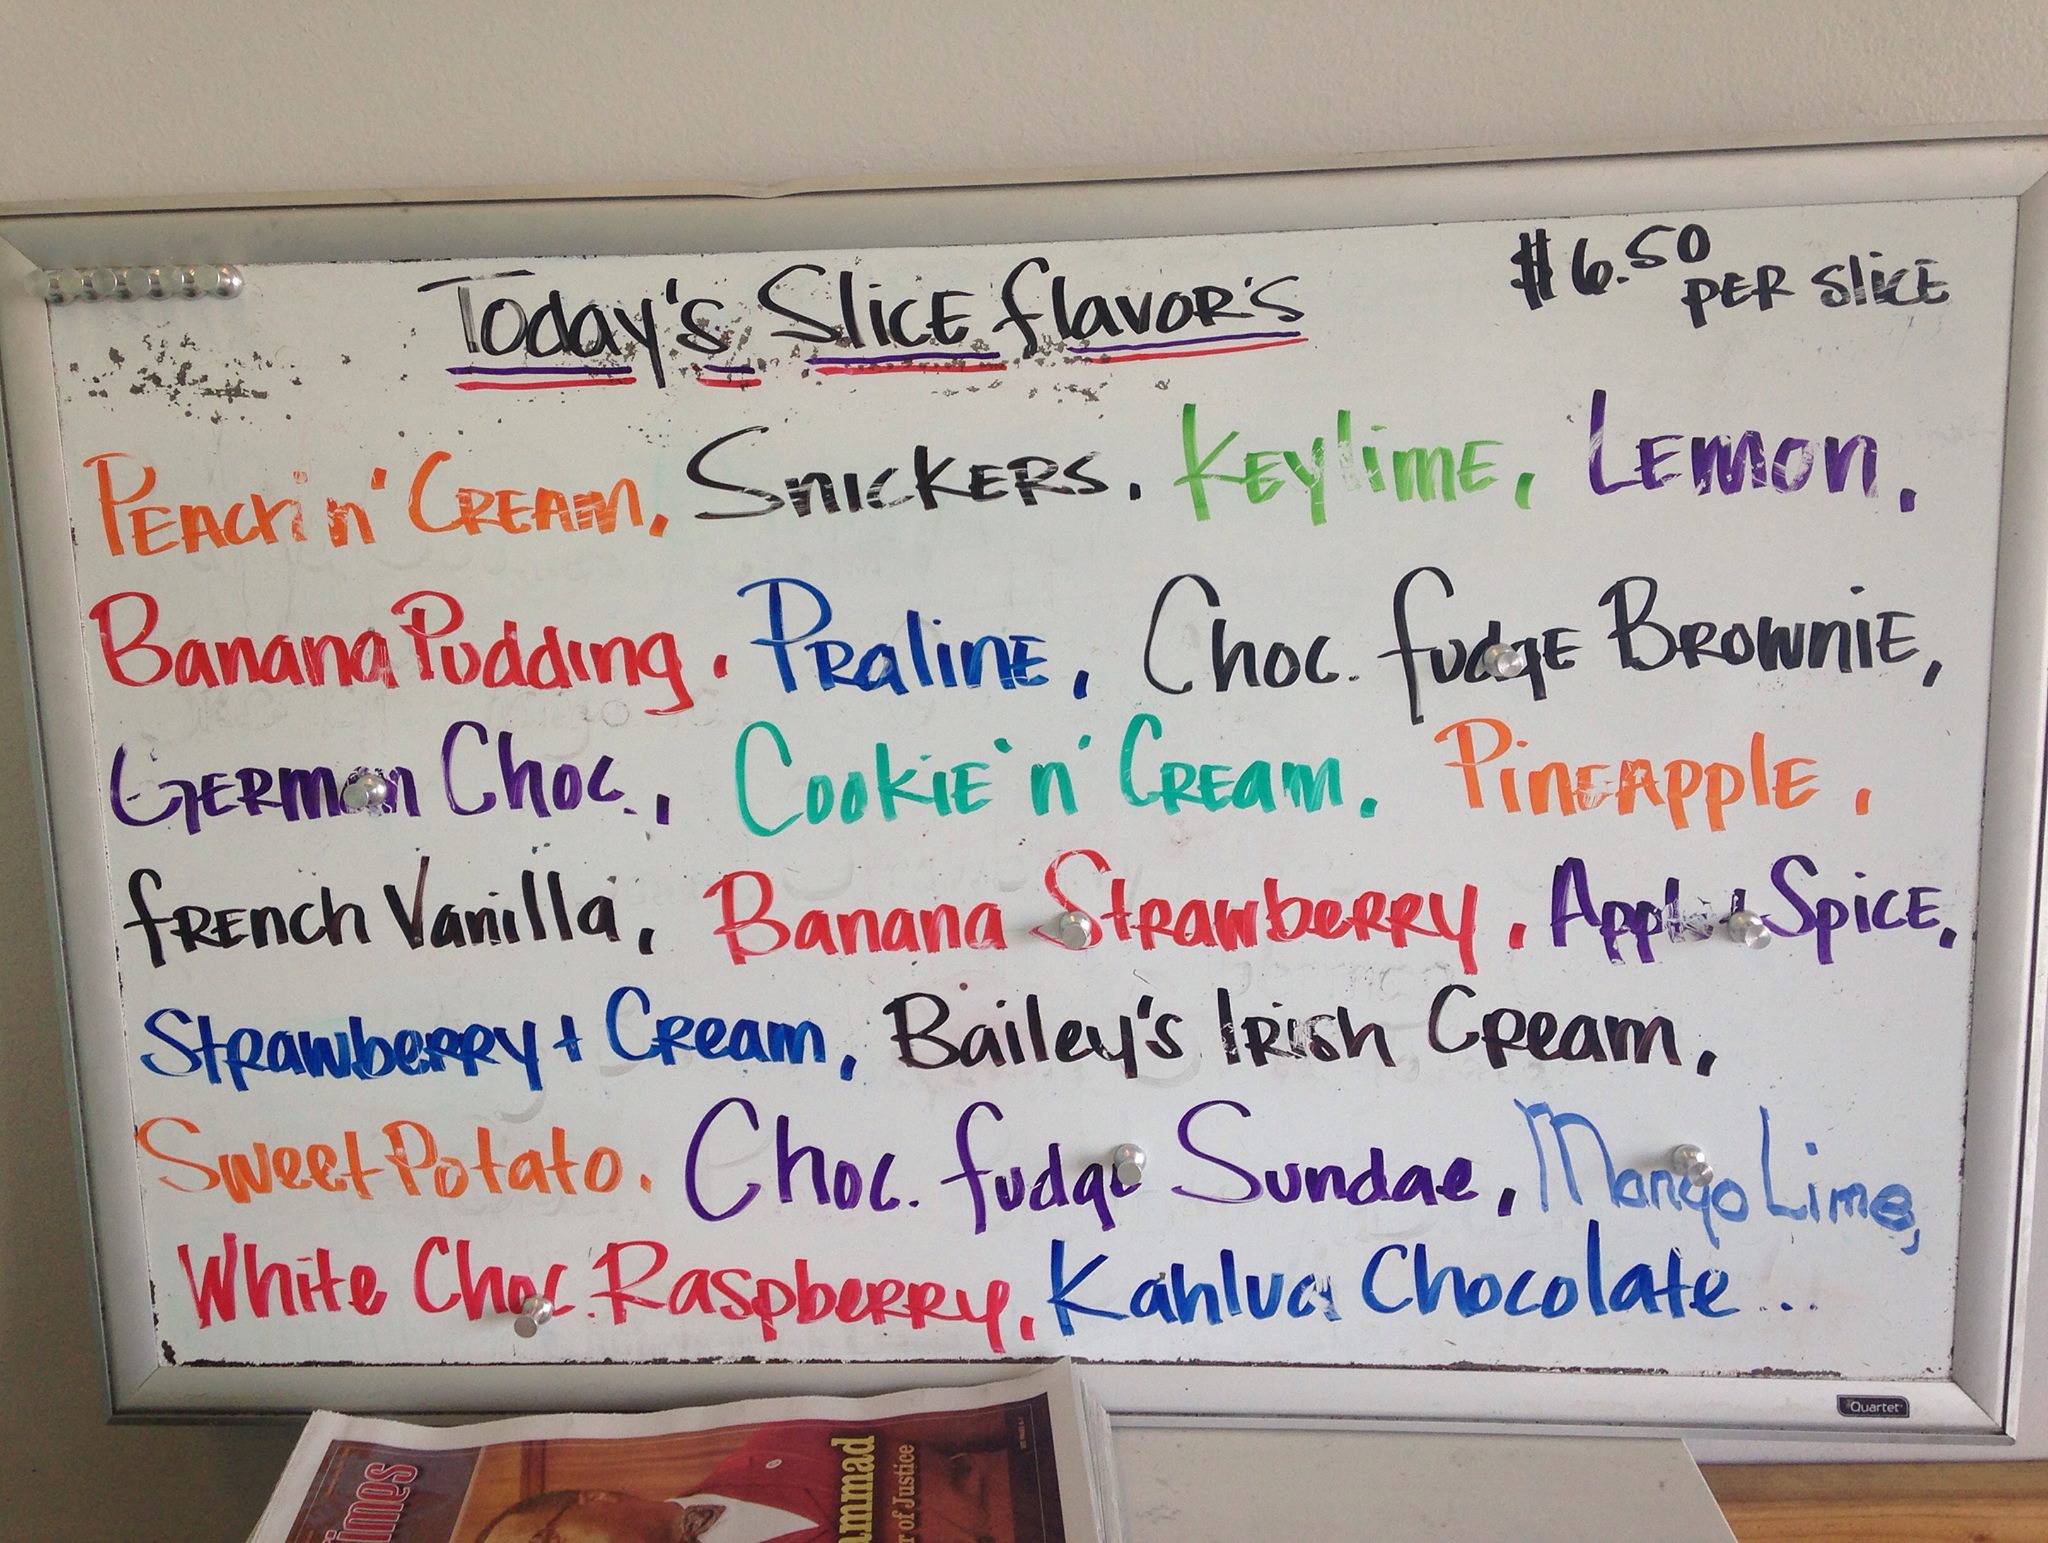 Today's Slice flavor's
$6.50 PER SlicE
PEach n' CREAM, SnickERS, KEylimE, LEmon,
Banana Pudding, PRalinE, Choc. fudgE BRowniE,
GERman Choc., CookiE 'n' CREam, PinEApplE,
fREnch Vanilla, Banana StRawbeRRy, Apple + SpicE,
StRawbeRRy + CReam, Bailey's IRish CReam,
Sweet Potato, Choc. fudge Sundae, Mango Lime,
White Choc. RaspbeRRy, Kahlua Chocolate...
Quartet
imes
ammad
r of Justice